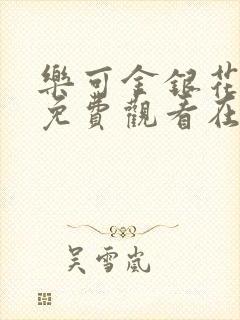 樂可金銀花
免費觀看在
吴雪嵐